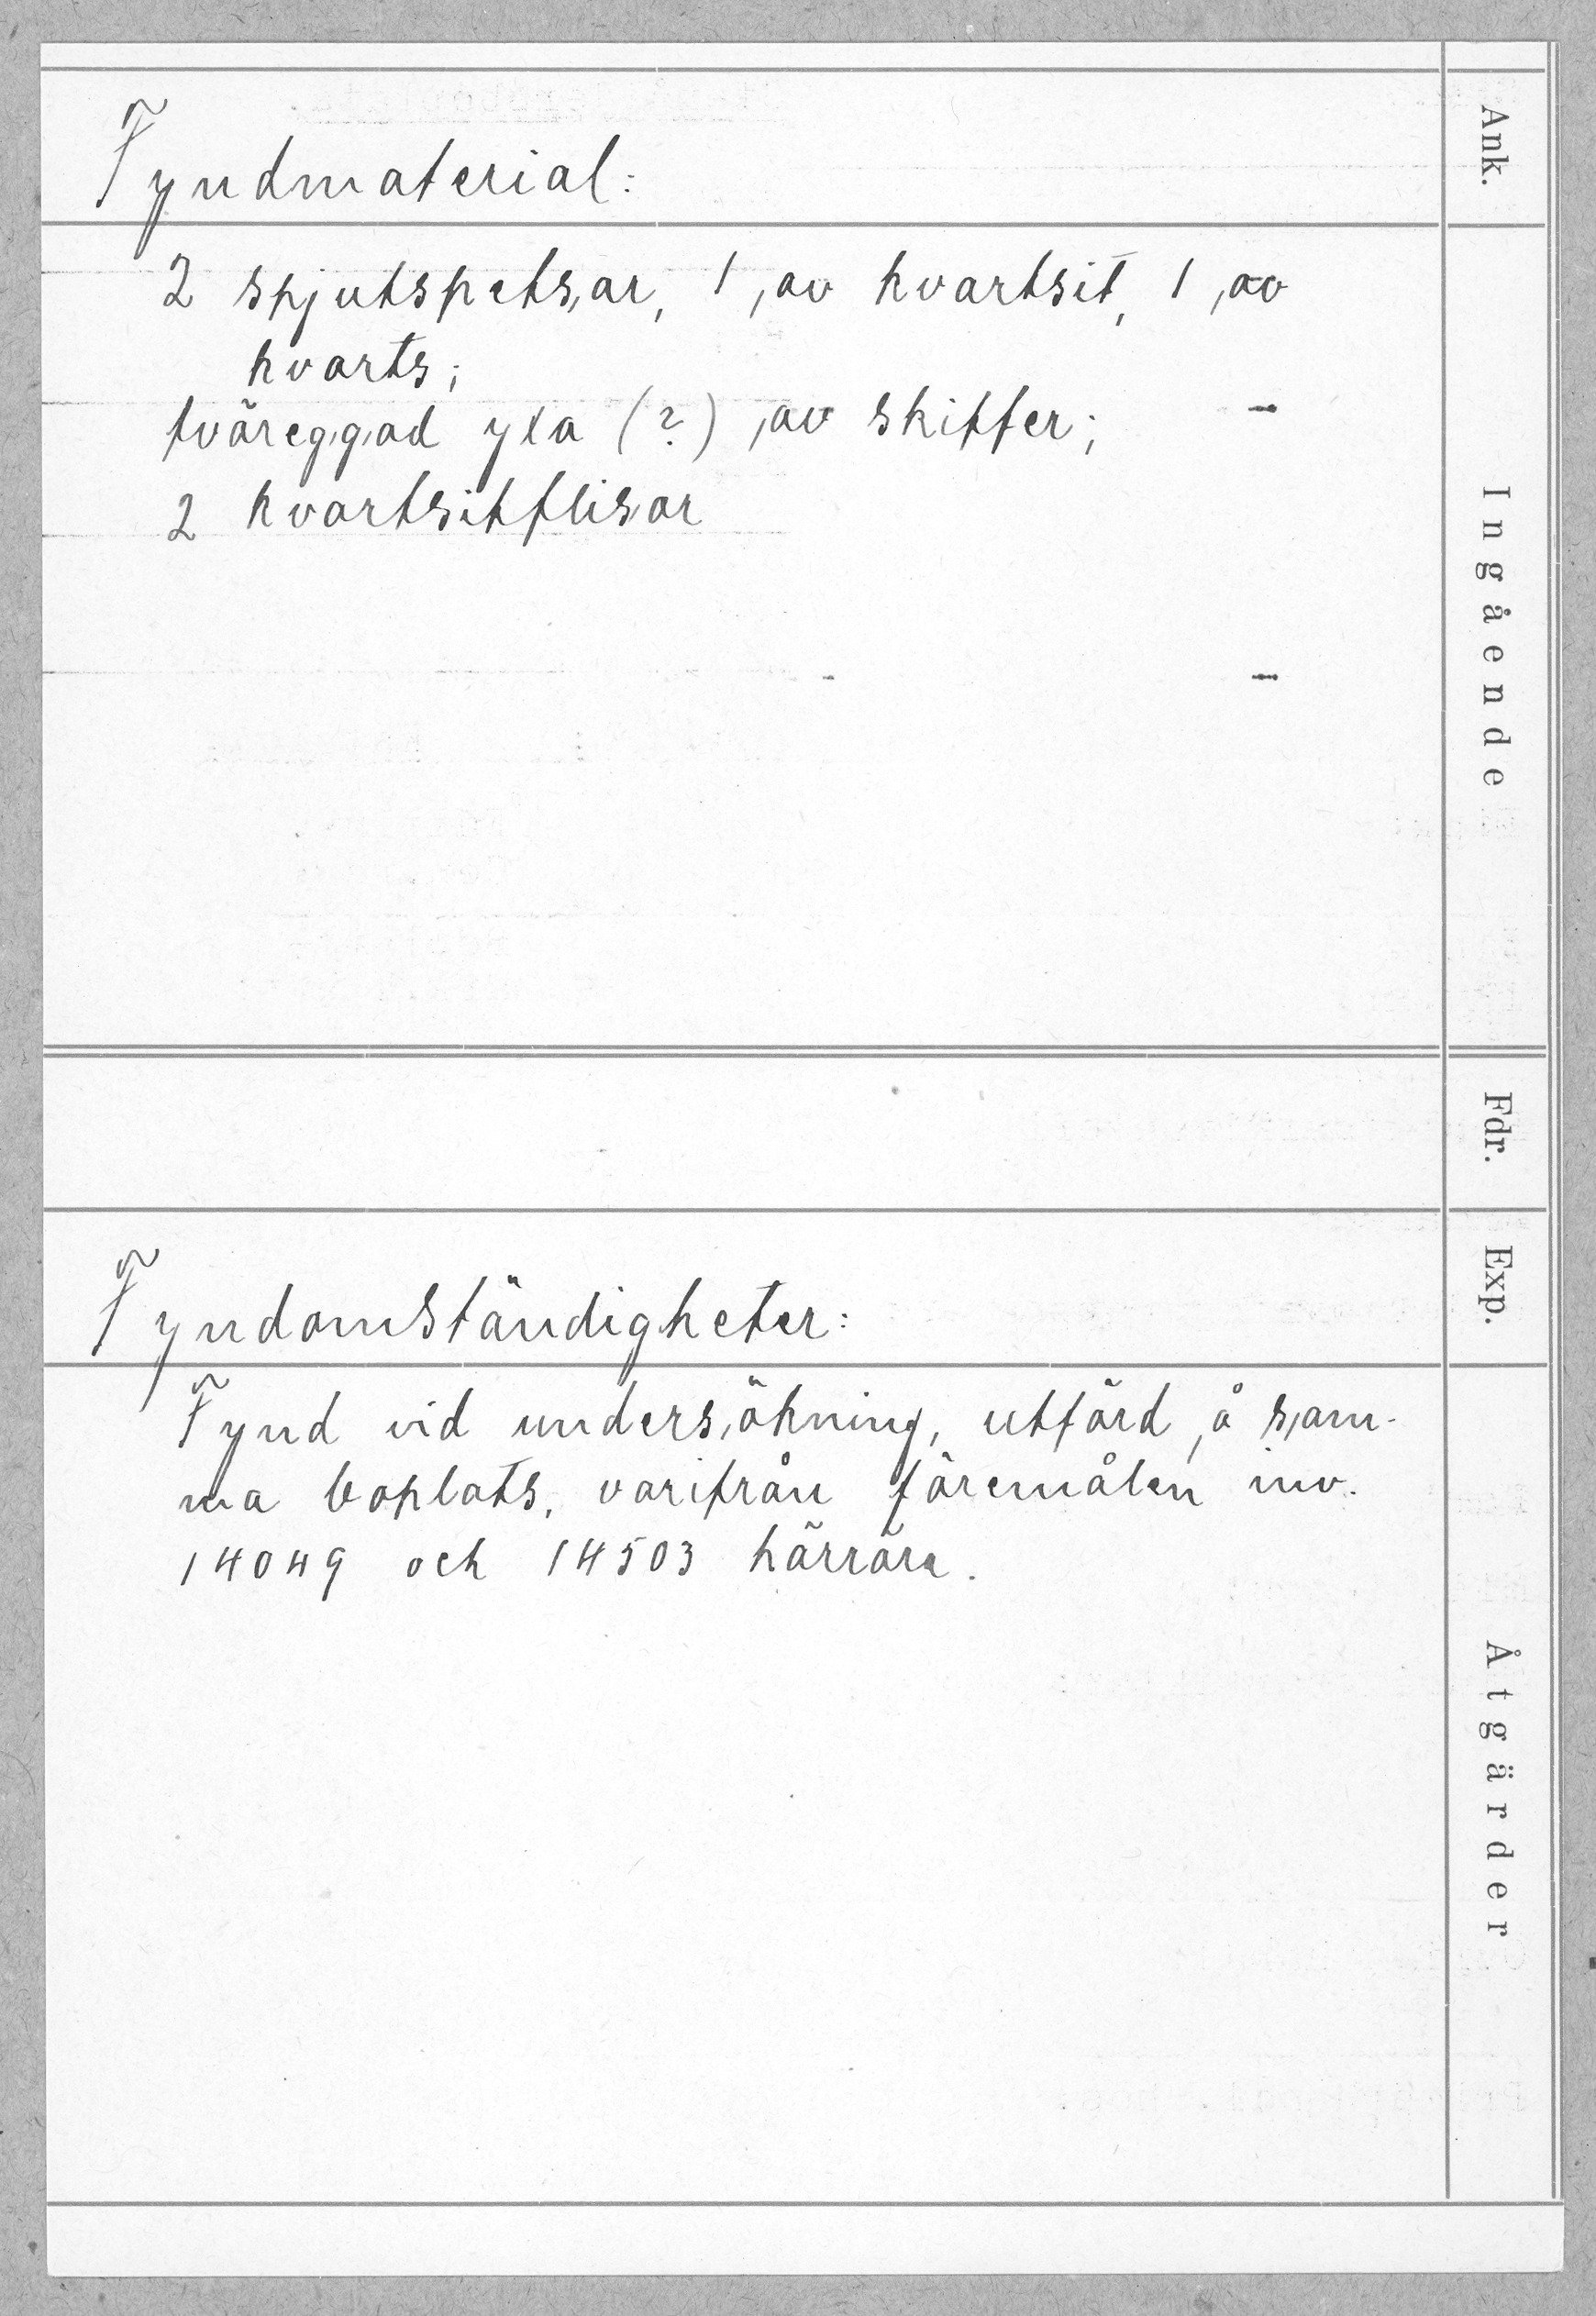 Fyndmaterial:
2 spjutspetsar, 1 av kvartsit, 1 av
kvarts;
tväreggad yxa (?) av skiffer;
2 kvartsitflisor
Fyndomständigheter:
Fynd vid undersökning, utförd å sam-
ma boplats, varifrån föremålen inv.
14049 och 14503 härröra.
Ank.
Ingående
Fdr.
Exp.
Åtgärder